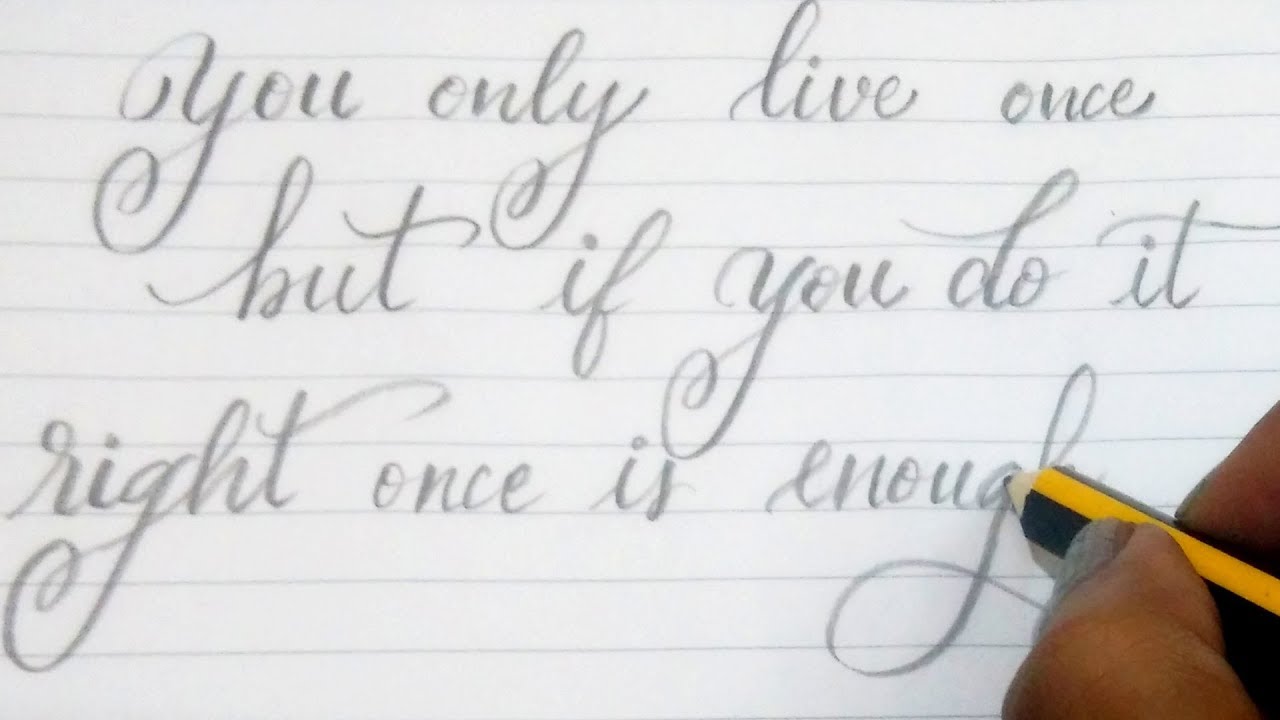 you only live once
but if you do it
right once is enough